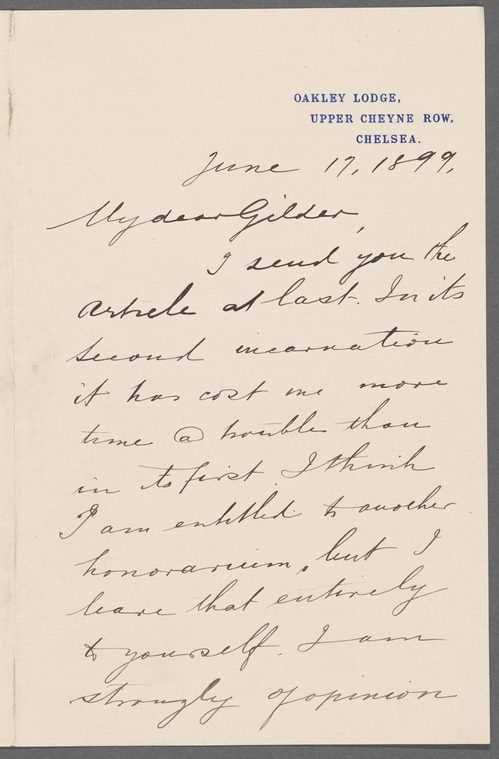 OAKLEY LODGE,
UPPER CHEYNE ROW.
CHELSEA.
June 17, 1899.
My dear Gilder,
I send you the
article at last. In its
second incarnation
it has cost me more
time & trouble than
in its first. I think
I am entitled to another
honorarium, but I
leave that entirely
to yourself. I am
strongly of opinion